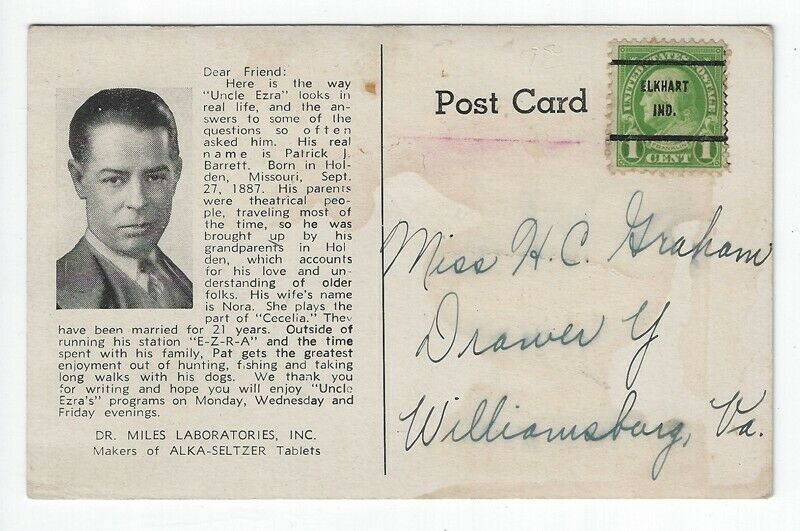 Dear Friend:
Here is the way
"Uncle Ezra" looks in
real life, and the an-
swers to some of the
questions so often
asked him. His real
name is Patrick J.
Barrett. Born in Hol-
den, Missouri, Sept.
27, 1887. His parents
were theatrical peo-
ple, traveling most of
the time, so he was
brought up by his
grandparents in Hol
den, which accounts
for his love and un-
derstanding of older
folks. His wife's name
is Nora. She plays the
part of "Cecelia." They
have been married for 21 years. Outside of
running his station "E-Z-R-A" and the time
spent with his family, Pat gets the greatest
enjoyment out of hunting, fishing and taking
long walks with his dogs. We thank you
for writing and hope you will enjoy "Uncle
Ezra's" programs on Monday, Wednesday and
Friday evenings.
DR. MILES LABORATORIES, INC.
Makers of ALKA-SELTZER Tablets
Post Card
UNITED STATES POSTAGE
ELKHART
IND.
FRANKLIN
1 CENT 1
Miss H. C. Graham
Drawer Y
Williamsburg, Va.